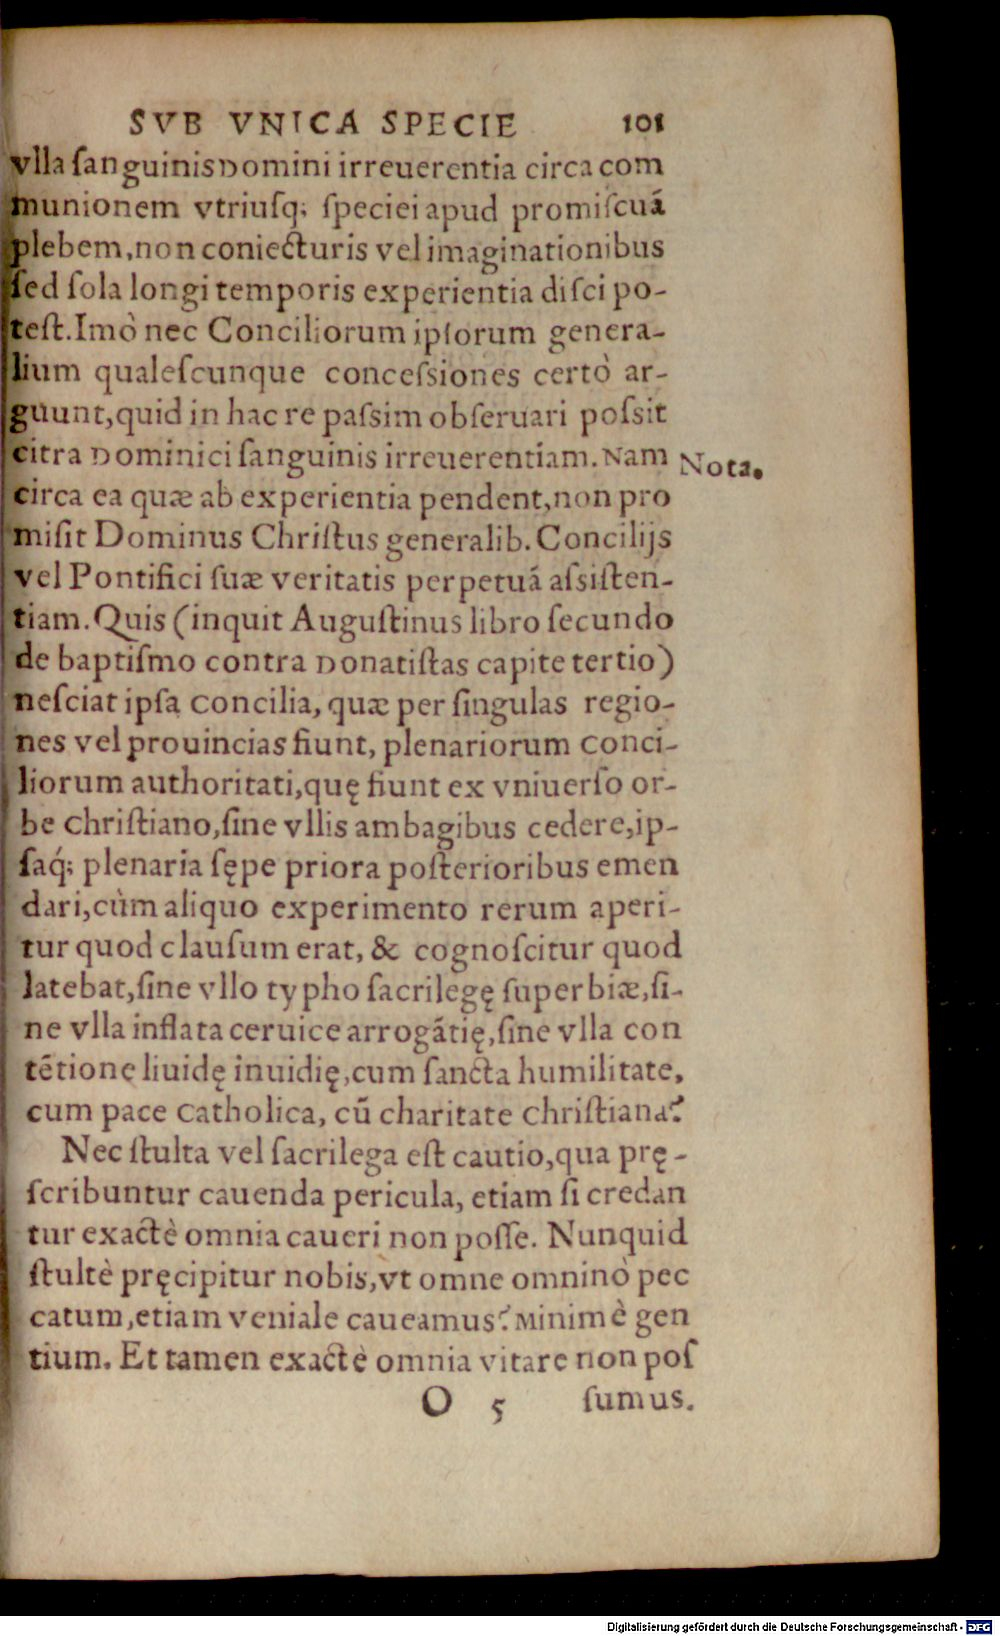 SVB VNICA SPECIE 101
vlla ſanguinis Domini irreuerentia circa com
munionem vtriuſq; ſpeciei apud promiſcuã
plebem, non coniecturis vel imaginationibus
ſed ſola longi temporis experientia diſci po-
teſt. Imò nec Conciliorum ipſorum genera-
lium qualeſcunque conceſsiones certò ar-
guunt, quid in hac re paſsim obſeruari poſsit
citra Dominici ſanguinis irreuerentiam. Nam
Nota.
circa ea quæ ab experientia pendent, non pro
miſit Dominus Chriſtus generalib. Concilijs
vel Pontifici ſuæ veritatis perpetuã aſsiſten-
tiam. Quis (inquit Auguſtinus libro ſecundo
de baptiſmo contra Donatiſtas capite tertio)
neſciat ipſa Concilia, quæ per ſingulas regio-
nes vel prouincias fiunt, plenariorum Conci-
liorum authoritati, quę fiunt ex vniuerſo or-
be Chriſtiano, ſine vllis ambagibus cedere, ip-
ſaq́; plenaria ſępe priora poſterioribus emen
dari, cùm aliquo experimento rerum aperi-
tur quod clauſum erat, & cognoſcitur quod
latebat, ſine vllo typho ſacrilegę ſuperbiæ, ſi-
ne vlla inflata ceruice arrogãtię, ſine vlla con
tẽtione liuidę inuidię, cum ſancta humilitate,
cum pace Catholica, cũ charitate Chriſtiana?
Nec ſtulta vel ſacrilega eſt cautio, qua prę-
ſcribuntur cauenda pericula, etiam ſi credan
tur exactè omnia caueri non poſſe. Nunquid
ſtultè pręcipitur nobis, vt omne omninò pec
catum, etiam veniale caueamus? Minimè gen
tium. Et tamen exactè omnia vitare non poſ
O 5 ſumus.
Digitalisierung gefördert durch die Deutsche Forschungsgemeinschaft - DFG